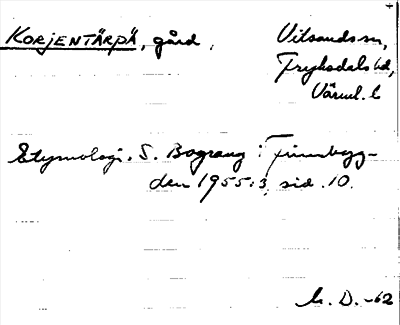 KORJENTÄRPÄ, gård, Vitsands sn,
Fryksdals hd,
Värml. l.
Etymologi. S. Bograng i Finnbyg-
den 1955:3, sid. 10.
M. D. -62